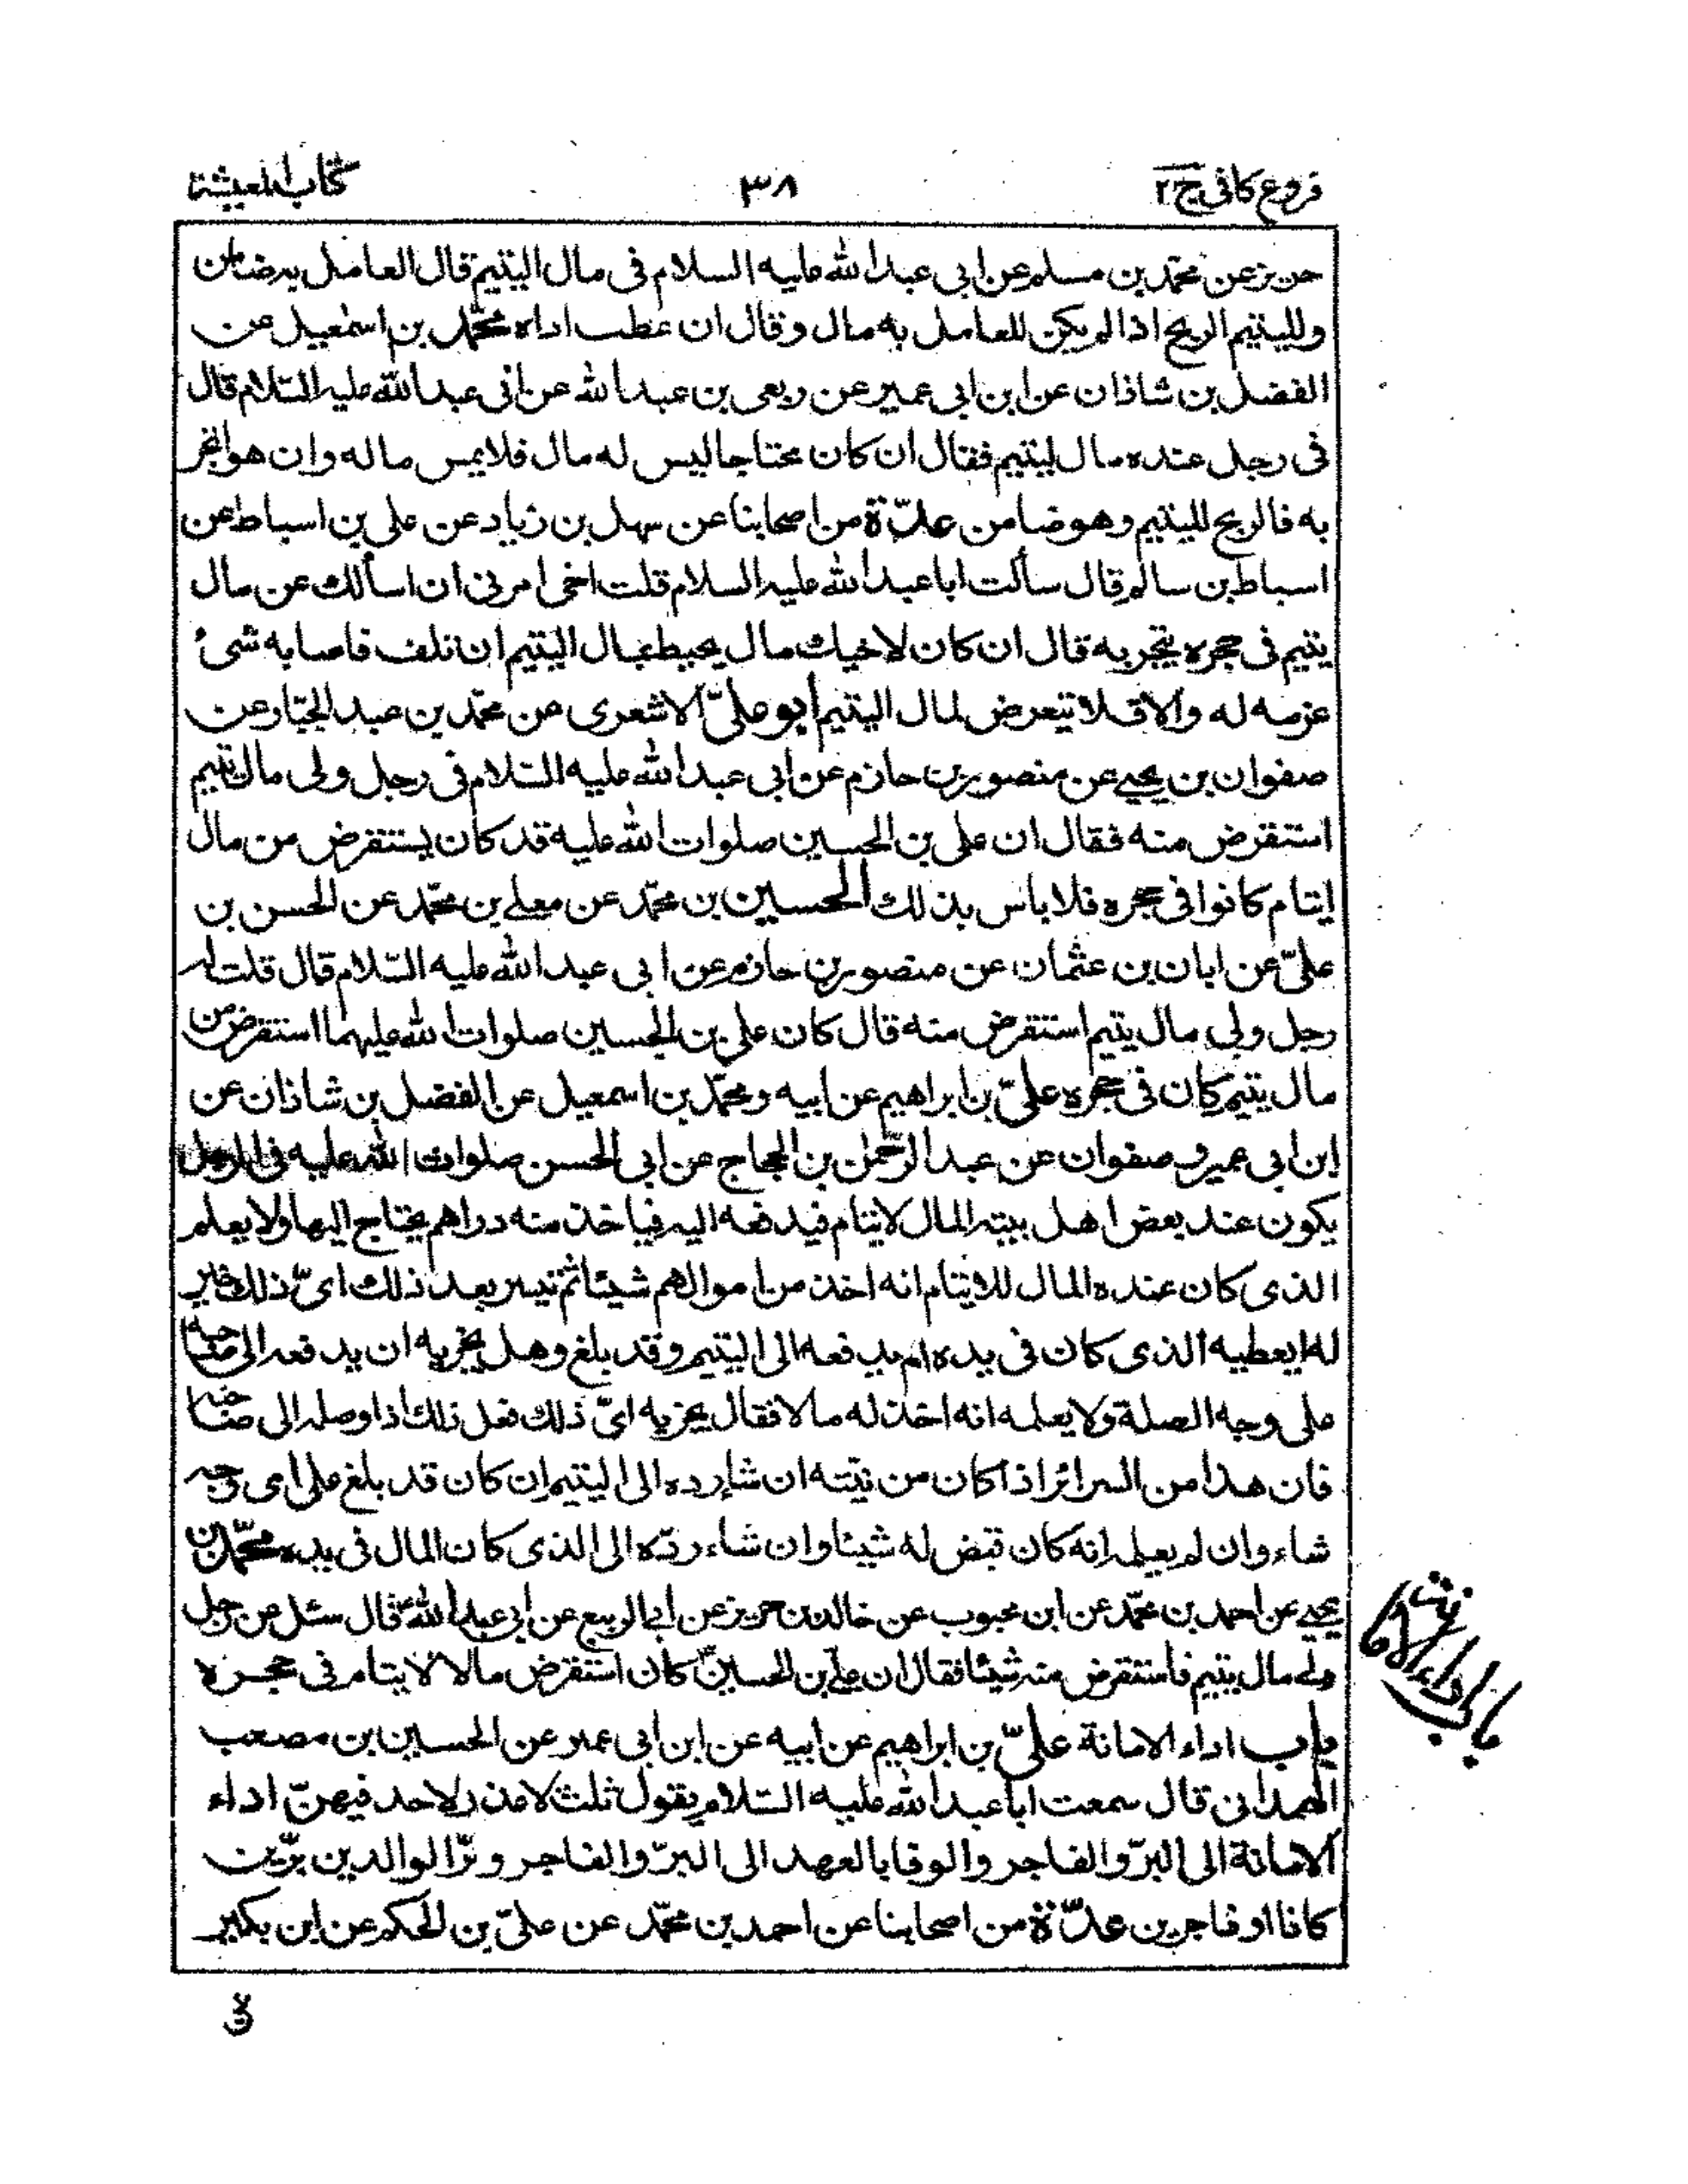 فروع كافى ج٢
٣٨
كتاب المعيشة
حريز عن محمّد بن مسلم عن ابى عبد الله عليه السلام فى مال اليتيم قال العامل به ضامن
ولليتيم الربح اذا لم يكن للعامل به مال وقال ان عطب اداه محمّد بن اسمعيل عن
الفضل بن شاذان عن ابن ابى عمير عن ربعى بن عبد الله عن ابى عبد الله عليه السّلام قال
فى رجل عنده مال ليتيم فقال ان كان محتاجا ليس له مال فلا يمس ماله وان هو اتجر
به فالربح لليتيم وهو ضامن عدّة من اصحابنا عن سهل بن زياد عن على بن اسباط عن
اسباط بن سالم قال سألت ابا عبد الله عليه السلام قلت اخى امرنى ان اسألك عن مال
يتيم فى حجره يتجر به قال ان كان لاخيك مال يحيط بمال اليتيم ان تلف فاصابه شئ
غرمه له والا فلا يتعرض لمال اليتيم أبو علىّ الاشعرى عن محمّد بن عبد الجبّار عن
صفوان بن يحيى عن منصور بن حازم عن ابى عبد الله عليه السّلام فى رجل ولى مال يتيم
استقرض منه فقال ان على بن الحسين صلوات الله عليه قد كان يستقرض من مال
ايتام كانوا فى حجره فلا باس بذلك الحسين بن محمّد عن معلى بن محمّد عن الحسن بن
علىّ عن ابان بن عثمان عن منصور بن حازم عن ابى عبد الله عليه السّلام قال قلت له
رجل ولى مال يتيم استقرض منه قال كان على بن الحسين صلوات الله عليهما استقرض من
مال يتيم كان فى حجره علىّ بن ابراهيم عن ابيه ومحمّد بن اسمعيل عن الفضل بن شاذان عن
ابن ابى عمير وصفوان عن عبد الرّحمن بن الحجاج عن ابى الحسن صلوات الله عليه فى الرجل
يكون عند بعض اهل بيته المال لايتام فيدفعه اليه فياخذ منه دراهم يحتاج اليها ولا يعلم
الذى كان عنده المال للايتام انه اخذ من اموالهم شيئا ثم تيسر بعد ذلك اىّ ذلك خير
له ايعطيه الذى كان فى يده ام يدفعه الى اليتيم وقد بلغ وهل يجزيه ان يدفعه الى صاحبه
على وجه الصلة ولا يعلمه انه اخذ له مالا فقال يجزيه اىّ ذلك فعل ذلك اذا وصله الى صاحبه
فان هذا من السرائر اذا كان من نيّته ان شاء رده الى اليتيم ان كان قد بلغ على اى وجه
شاء وان لم يعلمه انه كان قبض له شيئا وان شاء ردّه الى الذى كان المال فى يده محمّد بن
يحيى عن احمد بن محمّد عن ابن محبوب عن خالد بن جرير عن ابى الربيع عن ابى عبد الله ع قال سئل عن رجل
ولى مال يتيم فاستقرض منه شيئا فقال ان على بن الحسين ع كان استقرض مالا لايتام فى حجره
باب اداء الامانة علىّ بن ابراهيم عن ابيه عن ابن ابى عمير عن الحسين بن مصعب
الهمدانى قال سمعت ابا عبد الله عليه السّلام يقول ثلث لا عذر لاحد فيهنّ اداء
الامانة الى البرّ والفاجر والوفا بالعهد الى البرّ والفاجر وبرّ الوالدين برّين
كانا او فاجرين عدّة من اصحابنا عن احمد بن محمّد عن علىّ بن الحكم عن ابن بكير
باب اداء الامانة